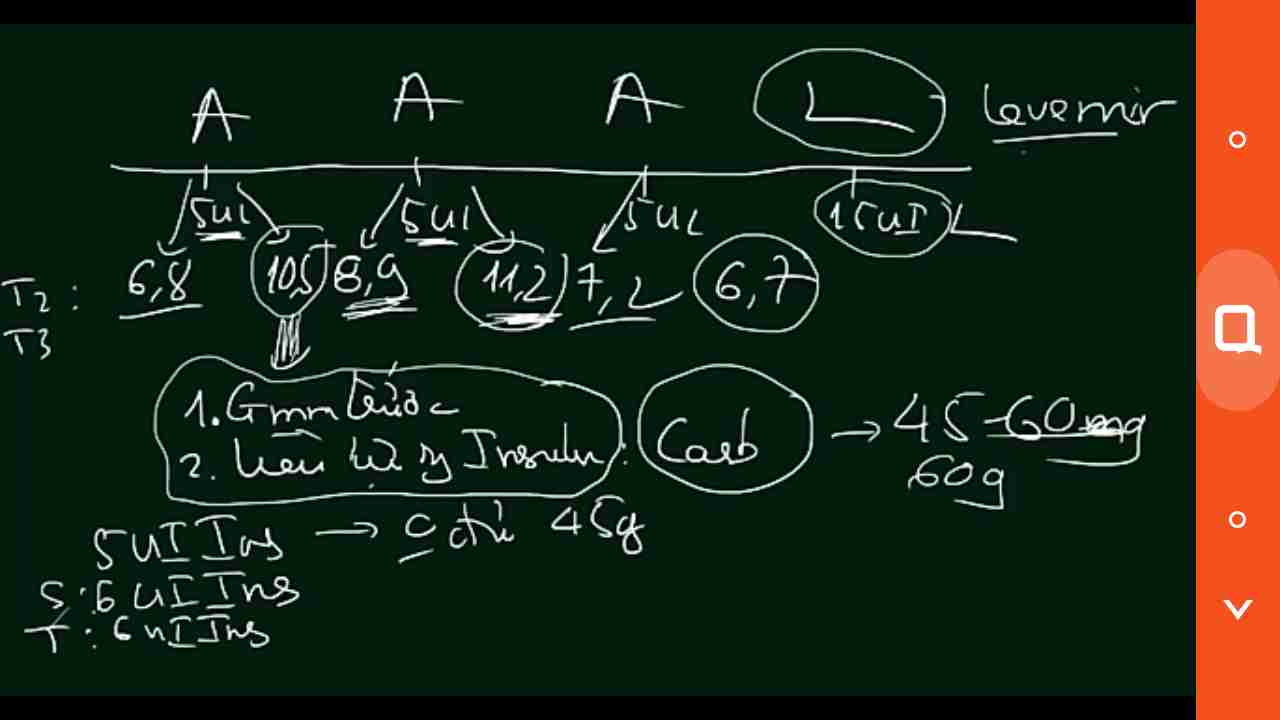 A A A L Levemir
5UI 5UI 5UI 15UI L
T2: 6,8 10,5 8,9 11,2 7,2 6,7
T3
1. Gmm trước
2. Liều Insulin: Carb → 45-60mg
60g
5UI Ins → 45g
S: 6 UI Ins
T: 6 UI Ins